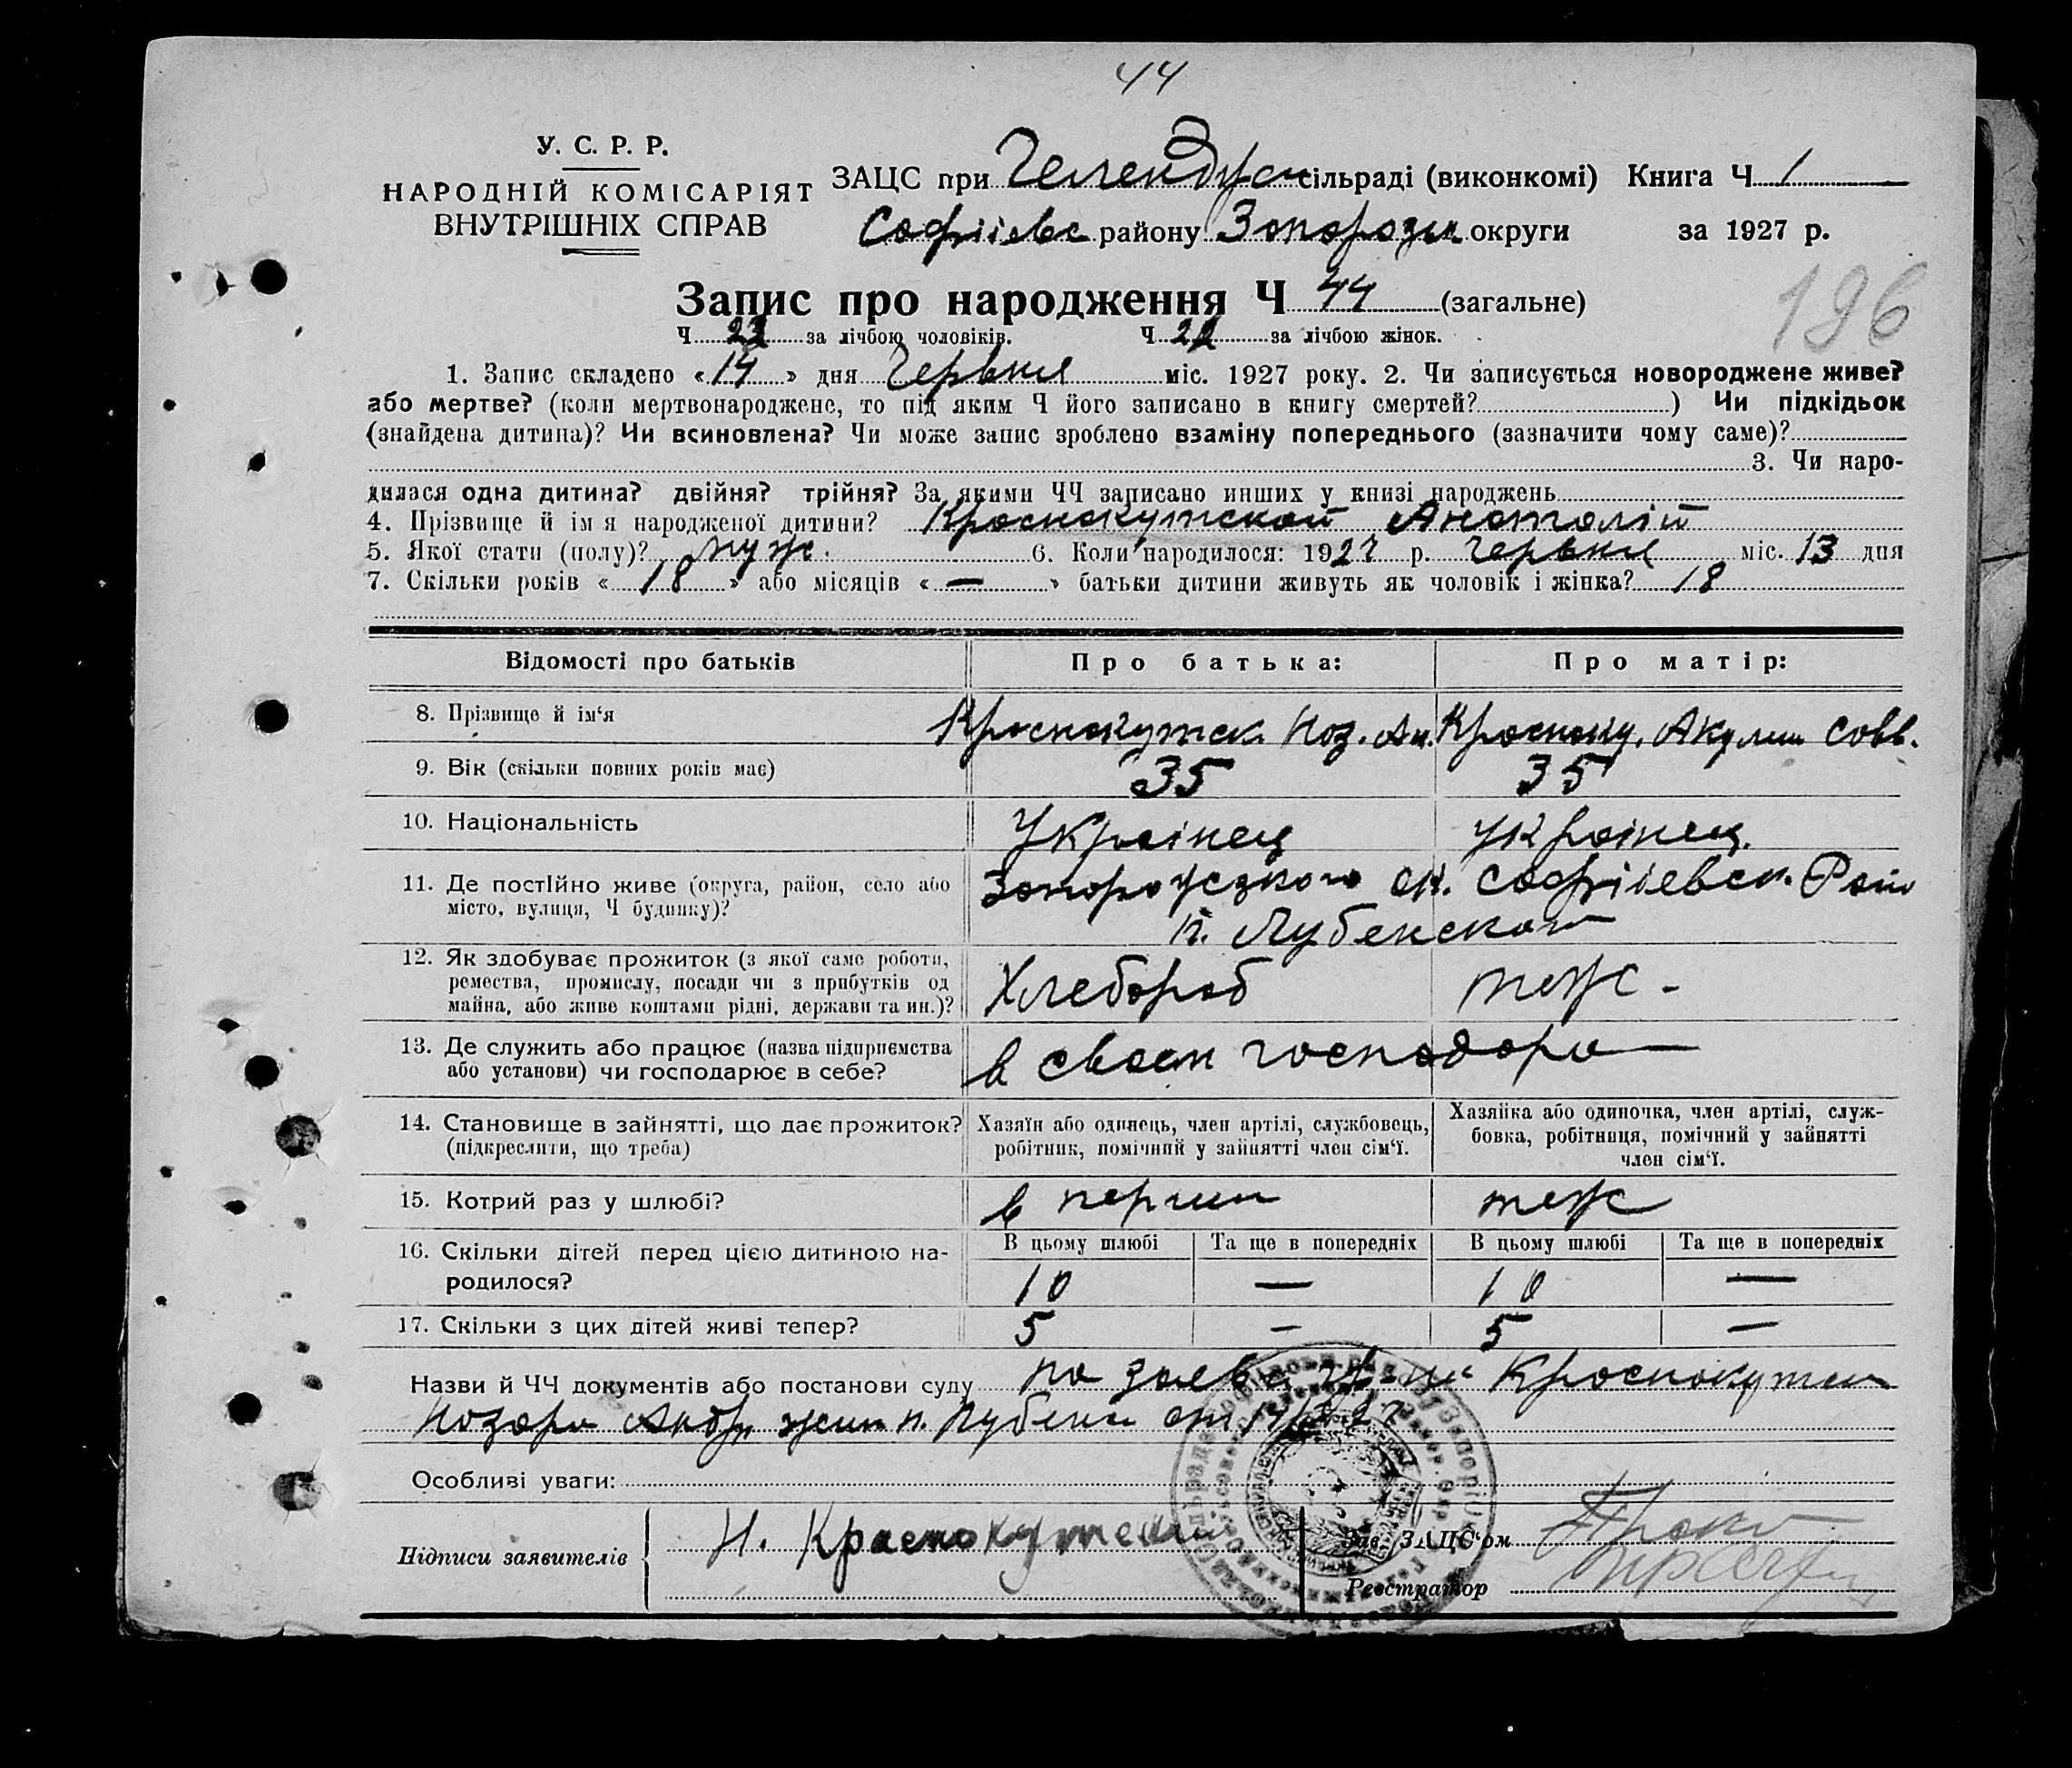 44
У. С. Р. Р.
НАРОДНІЙ КОМІСАРІЯТ
ВНУТРІШНІХ СПРАВ
ЗАЦС при сільраді (виконкомі) Книга Ч 1
Софіівс району Запорозьк округи за 1927 р.
196
Запис про народження Ч 44 (загальне)
Ч 22 за лічбою чоловіків. Ч 22 за лічбою жінок.
1. Запис складено «14» дня Червня міс. 1927 року. 2. Чи записується новороджене живе?
або мертве? (коли мертвонароджене, то під яким Ч його записано в книгу смертей?) Чи підкідьок
(знайдена дитина)? Чи всиновлена? Чи може запис зроблено взаміну попереднього (зазначити чому саме)?
3. Чи наро-
дилася одна дитина? двійня? трійня? За якими ЧЧ записано инших у книзі народжень
4. Прізвище й ім я народженої дитини? Краснокутской Анатолій
5. Якої стати (полу)? муж. 6. Коли народилося: 1927 р. червня міс. 13 дня
7. Скільки років «18» або місяців «—» батьки дитини живуть як чоловік і жінка? 18
Відомості про батьків Про батька: Про матір:
8. Прізвище й ім‘я Краснокутск. Наз. Ан. Красноку. Акулин Савв.
9. Вік (скільки повних років має) 35 35
10. Національність Українец українец.
11. Де постІйно живе (округа, район, село або Запорожсзкого ок. Софіиевск. Раю
місто, вулиця, Ч будинку)? п. Лубенской
12. Як здобуває прожиток (з якої саме роботи, Хлебороб теж-
ремества, промислу, посади чи з прибутків од
майна, або живе коштами рідні, держави та ин.)?
13. Де служить або працює (назва підприємства в своем господари
або установи) чи господарює в себе?
14. Становище в зайнятті, що дає прожиток? Хазяїн або одинець, член артілі, службовець, Хазяйка або одиночка, член артілі, служ-
(підкреслити, що треба) робітник, помічний у зайнятті член сім‘ї. бовка, робітниця, помічний у зайнятті
член сім‘ї.
15. Котрий раз у шлюбі? в перший теж
16. Скільки дітей перед цією дитиною на- В цьому шлюбі Та ще в попередніх В цьому шлюбі Та ще в попередніх
родилося? 10 — 10 —
17. Скільки з цих дітей живі тепер? 5 — 5 —
Назви й ЧЧ документів або постанови суду по заяве Краснокутск
Назара Андр. жит п. Лубенск от 14/
Особливі уваги:
Підписи заявителів Н. Краснокутский Зав. ЗАЦС‘ом
Реєстратор